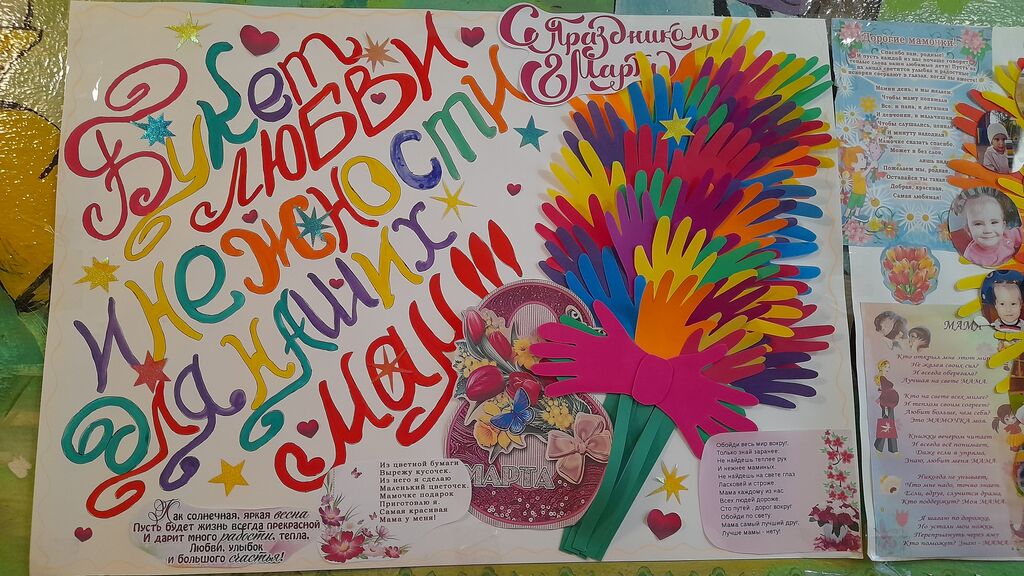 Букет
ЛЮБВИ
И нежности
для наших
мам!!!
С Праздником
8 Марта
8
МАРТА
Как солнечная, яркая весна
Пусть будет жизнь всегда прекрасной
И дарит много радости, тепла,
Любви, улыбок
и большого счастья!
Из цветной бумаги
Вырежу кусочек.
Из него я сделаю
Маленький цветочек.
Мамочке подарок
Приготовлю я
Самая красивая
Мама у меня!
Обойди весь мир вокруг,
Только знай заранее:
Не найдешь теплее рук
И нежнее маминых.
Не найдешь на свете глаз
Ласковей и строже.
Мама каждому из нас
Всех людей дороже.
Сто путей, дорог вокруг
Обойди по свету:
Мама самый лучший друг,
Лучше мамы - нету!
Дорогие мамочки!
Спасибо вам, родные!
Мамин день, и мы желаем
Чтобы маму понимали
Все: и папа, и детишки
И девчонки, и мальчишки,
Чтобы слушались, ценили
И минуту находили
Мамочке сказать спасибо.
Может и без слов,
лишь
Пожелаем мы, родная,
Оставайся ты такая
Добрая, красивая,
Самая любимая!
МАМ
Кто открыл мне этот мир
Не жалея своих сил?
И всегда оберегала?
Лучшая на свете МАМА.
Кто на свете всех милее?
И теплом своим согреет?
Любит больше, чем себя?
Это МАМОЧКА моя.
Книжки вечером читает
И всегда всё понимает,
Даже если я упряма,
Знаю, любит меня МАМА.
Никогда не унывает,
Что мне надо, точно знает.
Если, вдруг, случится драма,
Кто поддержит? Моя МАМА.
Я шагаю по дорожке,
Но устали мои ножки.
Перепрыгнуть через яму
Кто поможет? Знаю - МАМА.